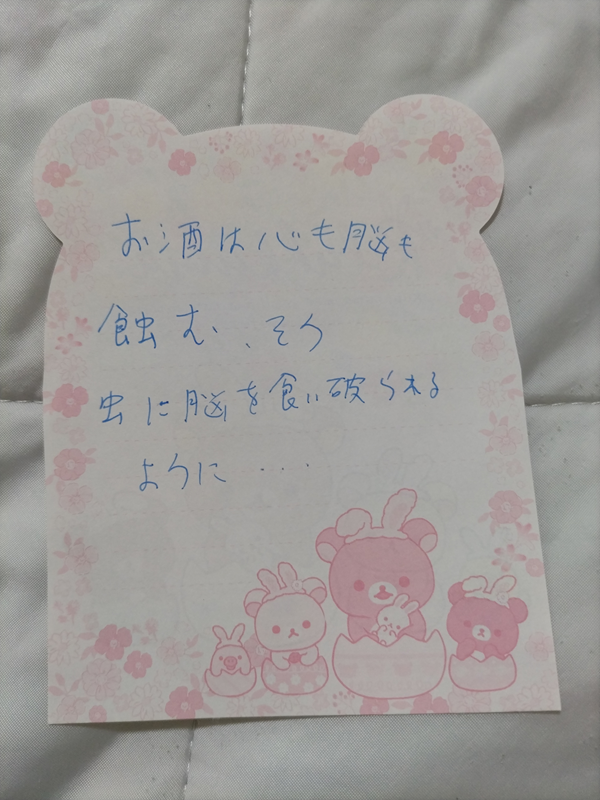 お酒は心も脳も
蝕む、そう
虫に脳を食い破られる
ように...